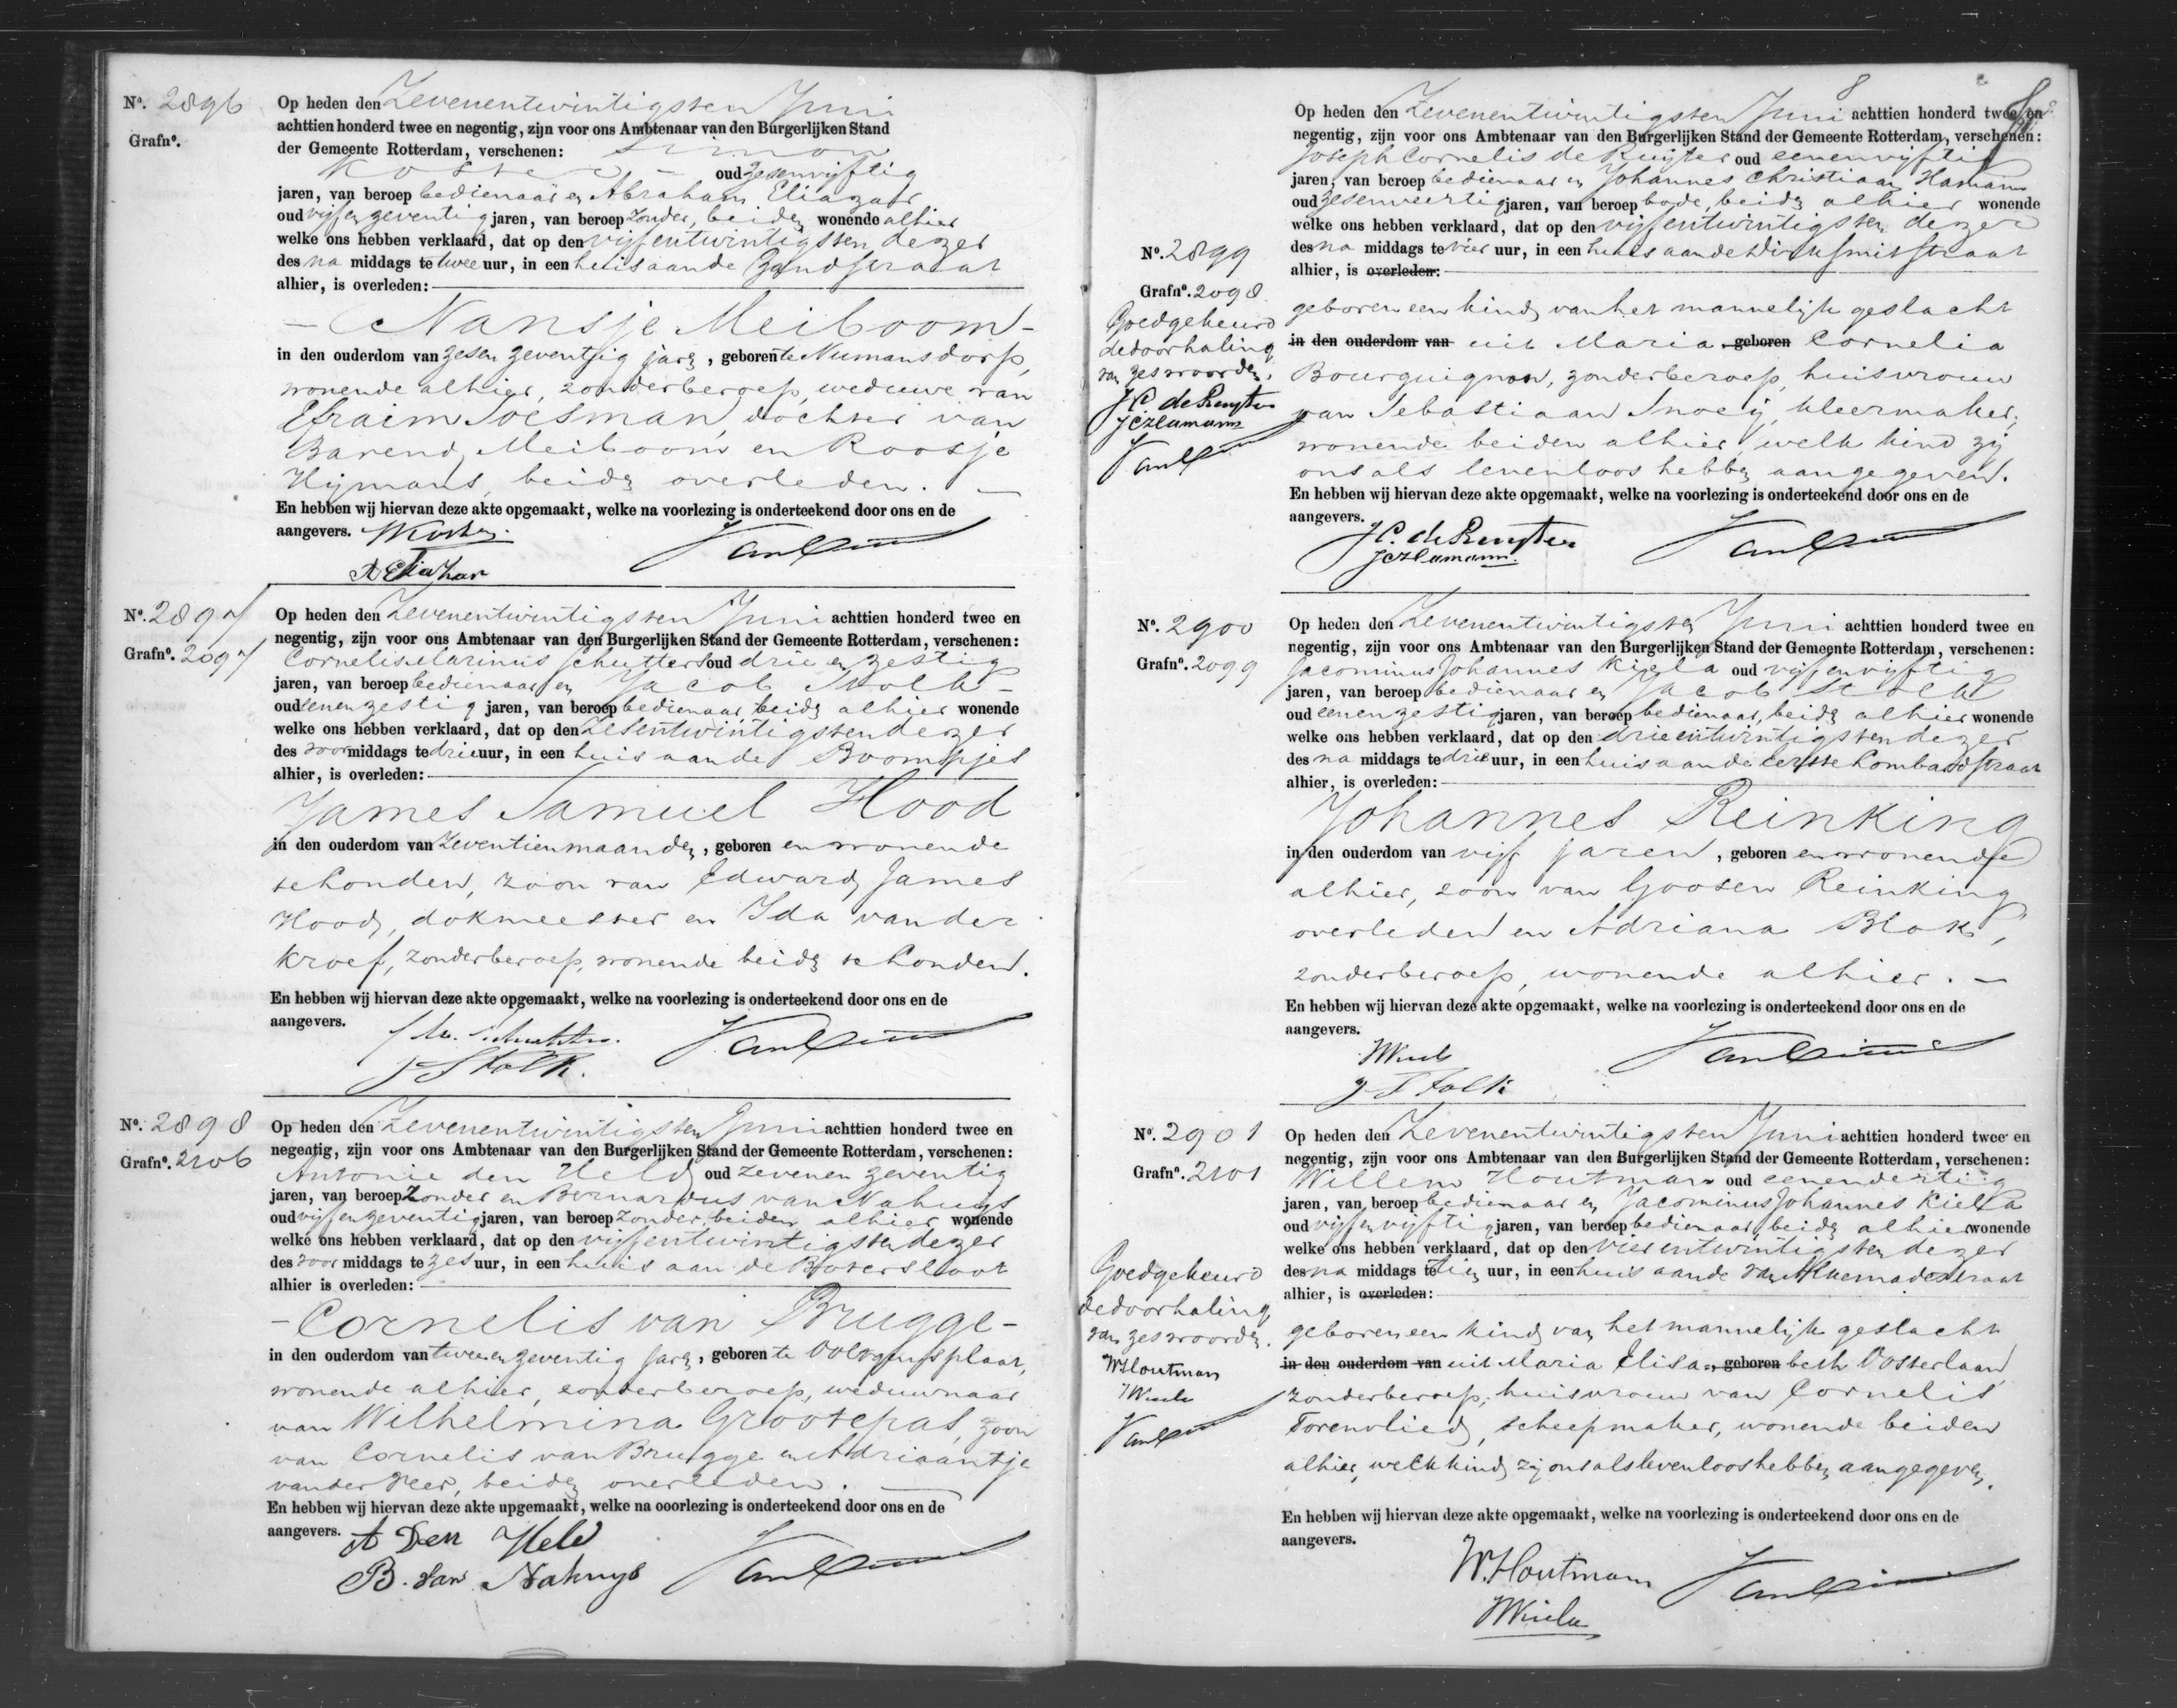 Nº. 2896
Grafnº.
Op heden den Zevenentwintigsten Juni
achttien honderd twee en negentig, zijn voor ons Ambtenaar van den Burgerlijken Stand
der Gemeente Rotterdam, verschenen: Simon
Koster oud zesenvijftig
jaren, van beroep bedienaar en Abraham Eliazar
oud vijfenzeventig jaren, van beroep zonder, beiden wonende alhier
welke ons hebben verklaard, dat op den vijfentwintigsten dezer
des na middags te twee uur, in een huis aan de Zandstraat
alhier, is overleden:
Nansje Meiboom
in den ouderdom van zesenzeventig jaren, geboren te Numansdorp,
wonende alhier, zonder beroep, weduwe van
Efraim Soesman, dochter van
Barend Meiboom en Roosje
Hijmans, beiden overleden.
En hebben wij hiervan deze akte opgemaakt, welke na voorlezing is onderteekend door ons en de
aangevers. SKoster
A Eliazar
Nº. 2897
Grafnº. 2097
Op heden den Zevenentwintigsten Juni achttien honderd twee en
negentig, zijn voor ons Ambtenaar van den Burgerlijken Stand der Gemeente Rotterdam, verschenen:
Cornelis Marinus Schutters oud drieenzestig
jaren, van beroep bedienaar en Jacob Stolk
oud eenenzestig jaren, van beroep bedienaar, beiden alhier wonende
welke ons hebben verklaard, dat op den Zesentwintigsten dezer
des voormiddags te drie uur, in een huis aan de Boompjes
alhier, is overleden:
James Samuel Hood
in den ouderdom van zeventien maanden, geboren en wonende
te Londen, zoon van Edward James
Hood, dokmeester en Ida van der
Kroef, zonder beroep, wonende beiden te Londen.
En hebben wij hiervan deze akte opgemaakt, welke na voorlezing is onderteekend door ons en de
aangevers.
J Stolk.
Nº. 2898
Grafnº. 2106
Op heden den Zevenentwintigsten Juni achttien honderd twee en
negentig, zijn voor ons Ambtenaar van den Burgerlijken Stand der Gemeente Rotterdam, verschenen:
Antonie den Held oud zevenenzeventig
jaren, van beroep zonder en Bernardus van Nahuys
oud vijfenzeventig jaren, van beroep zonder, beiden alhier wonende
welke ons hebben verklaard, dat op den vijfentwintigsten dezer
des voor middags te zes uur, in een huis aan de Botersloot
alhier is overleden:
Cornelis van Brugge
in den ouderdom van tweeenzeventig jaren, geboren te Ooltgensplaat,
wonende alhier, zonder beroep, weduwnaar
van Wilhelmina Grootepas, zoon
van Cornelis van Brugge en Adriaantje
van der Veer, beiden overleden.
En hebben wij hiervan deze akte upgemaakt, welke na ooorlezing is onderteekend door ons en de
aangevers. A Den Held
B. van Nahuys
8
Nº. 2899
Grafnº. 2098
Goedgekeurd
de doorhaling
van zes woorden.
JC de Ruyter
JCHamann
Op heden den Zevenentwintigsten Juni achttien honderd twee en
negentig, zijn voor ons Ambtenaar van den Burgerlijken Stand der Gemeente Rotterdam, verschenen:
Joseph Cornelis de Ruijter oud eenenvijftig
jaren, van beroep bedienaar en Johannes Christiaan Hamann
oud zesenveertig jaren, van beroep bode, beiden alhier wonende
welke ons hebben verklaard, dat op den vijfentwintigsten dezer
des na middags te vier uur, in een huis aan de Dirk Smitstraat
alhier, is overleden:
geboren een kind van het mannelijk geslacht
in den ouderdom van uit Maria geboren Cornelia
Bourguignon, zonder beroep, huisvrouw
van Sebastiaan Snoeij, kleermaker,
wonende beiden alhier, welk kind zij
ons als levenloos hebben aangegeven.
En hebben wij hiervan deze akte opgemaakt, welke na voorlezing is onderteekend door ons en de
aangevers. JC. de Ruyter
JCHamann.
Nº. 2900
Grafnº. 2099
Op heden den Zevenentwintigsten Juni achttien honderd twee en
negentig, zijn voor ons Ambtenaar van den Burgerlijken Stand der Gemeente Rotterdam, verschenen:
Jacominus Johannes Kiela oud vijfenvijftig
jaren, van beroep bedienaar en Jacob Stolk
oud eenenzestig jaren, van beroep bedienaar, beiden alhier wonende
welke ons hebben verklaard, dat op den drieentwintigsten dezer
des na middags te drie uur, in een huis aan de eerste Lombardstraat
alhier, is overleden:
Johannes Reinking
in den ouderdom van vijf jaren, geboren en wonende
alhier, zoon van Goosen Reinking
overleden en Adriana Blok,
zonder beroep, wonende alhier.
En hebben wij hiervan deze akte opgemaakt, welke na voorlezing is onderteekend door ons en de
aangevers.
J Stolk
Nº. 2901
Grafnº. 2101
Goedgekeurd
de doorhaling
van zes woorden.
WHoutman
Op heden den Zevenentwintigsten Juni achttien honderd twee en
negentig, zijn voor ons Ambtenaar van den Burgerlijken Stand der Gemeente Rotterdam, verschenen:
Willem Houtman oud eenendertig
jaren, van beroep bedienaar en Jacominus Johannes Kiela
oud vijfenvijftig jaren, van beroep bedienaar, beiden alhier wonende
welke ons hebben verklaard, dat op den vierentwintigsten dezer
des na middags te tien uur, in een huis aan de van Alkemadestraat
alhier, is overleden:
geboren een kind van het mannelijk geslacht
in den ouderdom van uit Maria Elisa geboren beth Oosterlaan
zonder beroep, huisvrouw van Cornelis
Torenvlied, scheepmaker, wonende beiden
alhier, welk kind zij ons als levenloos hebben aangegeven.
En hebben wij hiervan deze akte opgemaakt, welke na voorlezing is onderteekend door ons en de
aangevers.
W. Houtman